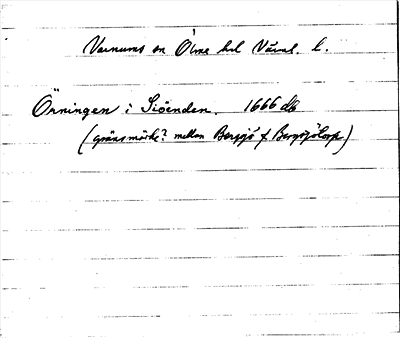 Varnums sn Ölme hd Värml. l.
Örningen i Siöenden. 1666 db
(gränsmärke? mellan Bergsjö f Bergsjötorp)